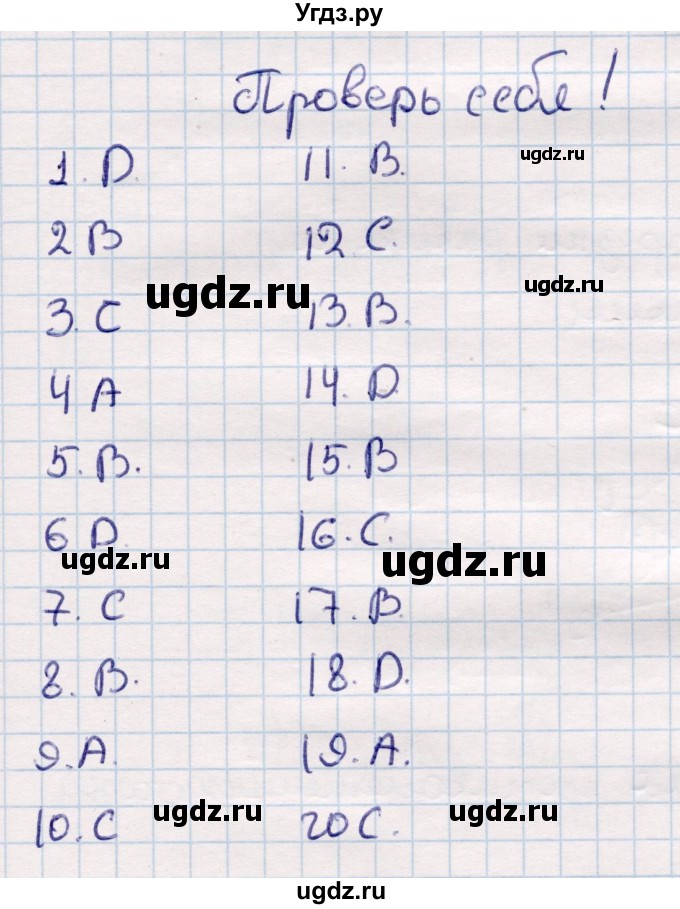 Угдз.ру
Проверь себя!
ugdz.ru
1. D.
2 B
3. C
4 A
5. B.
6 D.
7. C
8. B.
9. A.
10. C
11. B.
12 C.
13. B.
14. D
15. B
16. C.
17. B.
18. D.
19. A.
20 C.
ugdz.ru
ugdz.ru
ugdz.ru
ugdz.ru
ugdz.ru
ugdz.ru
ugdz.ru